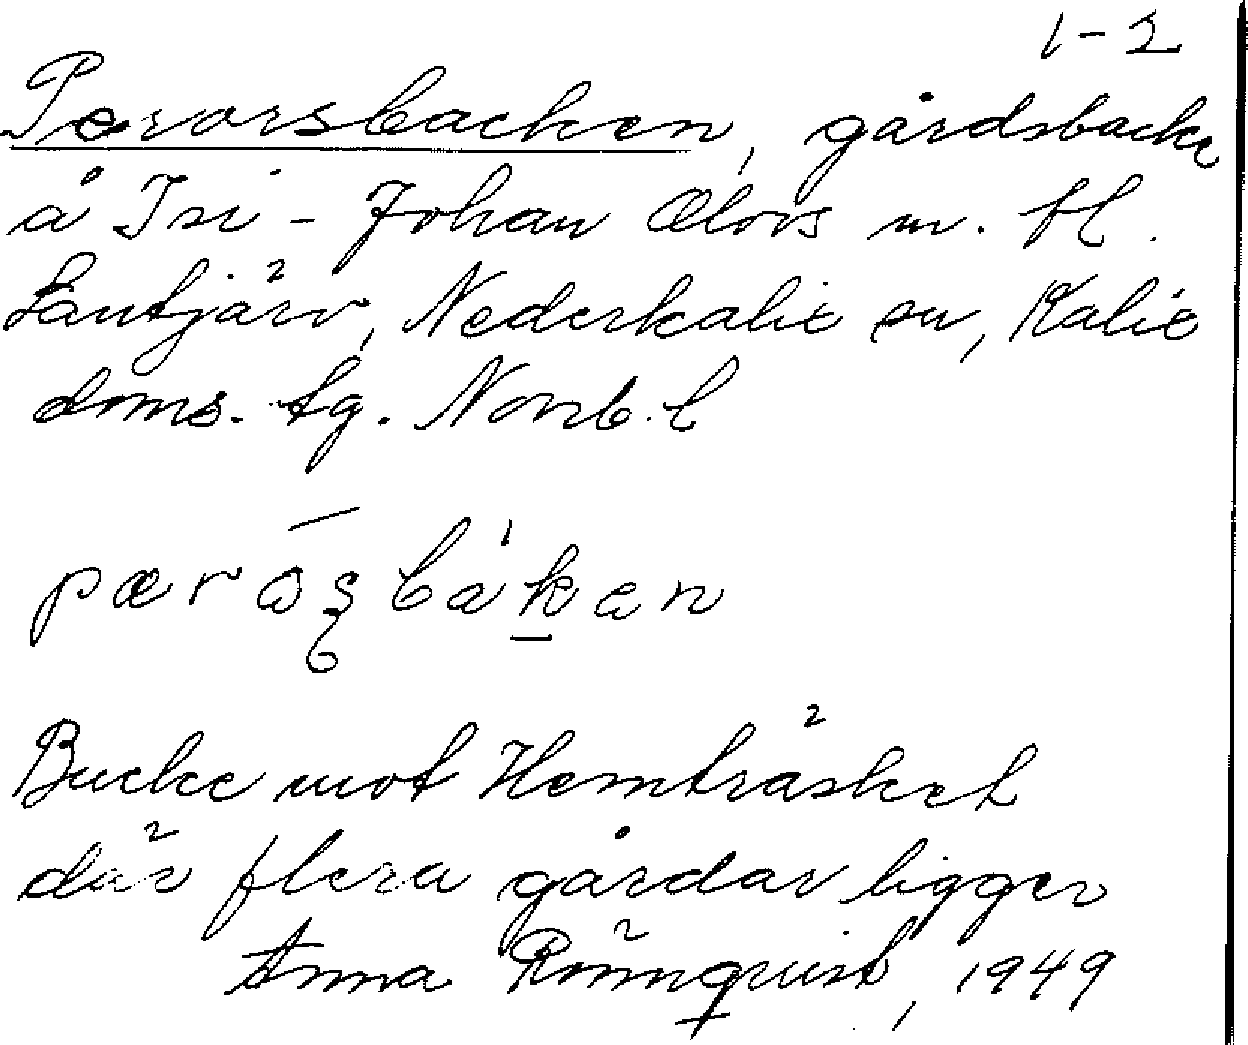 1-2
Perorsbacken, gårdsbacke
å Isi - Johan Olovs m. fl.
Lantjärv, Nederkalix sn, Kalix
doms. tg. Norrb. l
Backe mot Hemträsket
där flera gårdar ligger
Anna Rönnquist, 1949